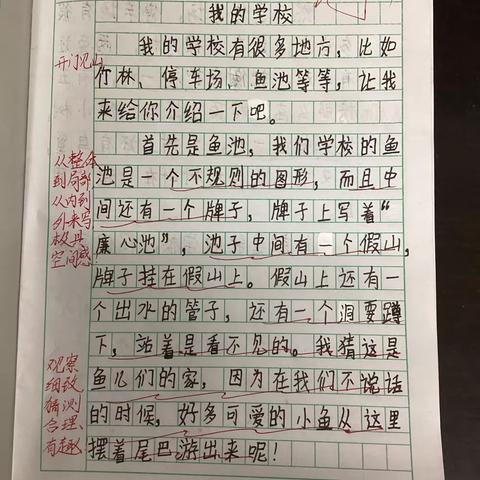 我的学校
我的学校有很多地方，比如
竹林、停车场、鱼池等等，让我
来给你介绍一下吧。
首先是鱼池，我们学校的鱼
池是一个不规则的图形，而且中
间还有一个牌子，牌子上写着“
廉心池”，池子中间有一个假山，
牌子挂在假山上。假山上还有一
个出水的管子，还有一个洞要蹲
下，站着是看不见的。我猜这是
鱼儿们的家，因为在我们不说话
的时候，好多可爱的小鱼从这里
摆着尾巴游出来呢！
开门见山
从整体
到局部
从内到
外来写
极具
空间感
观察
细致
猜测
合理、
有趣